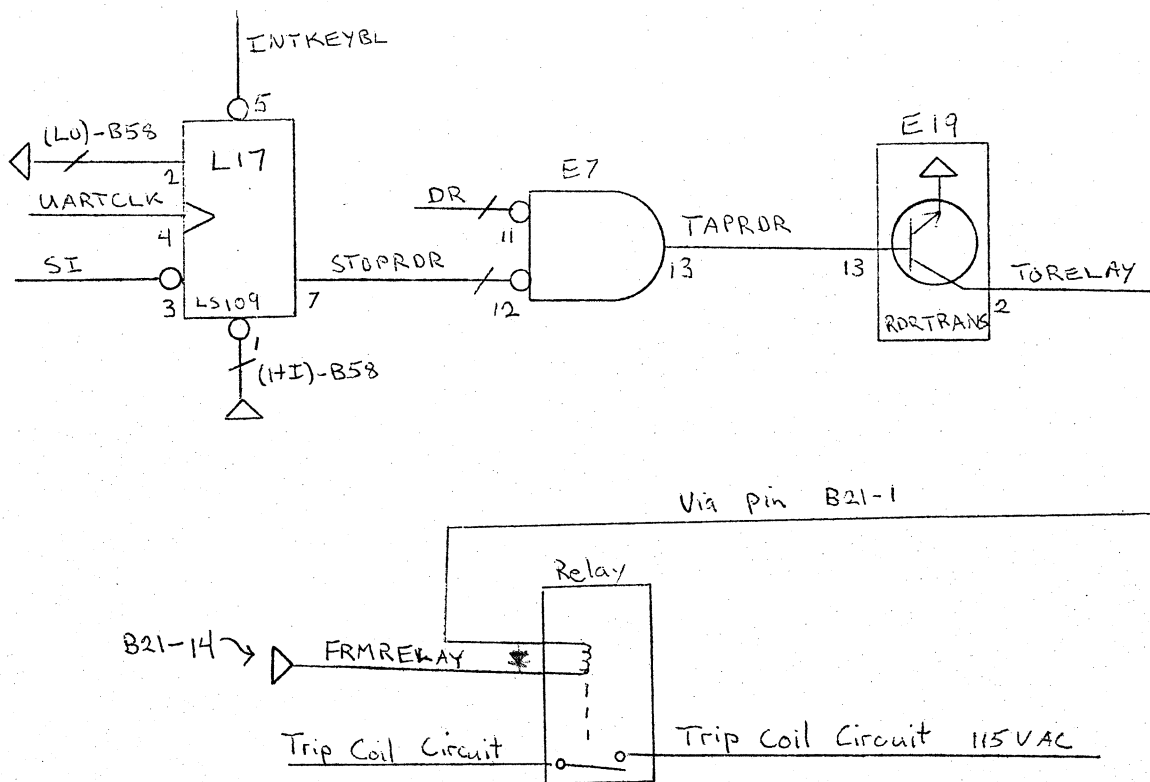 INTKEYBL
5
(LO)-B58
2
L17
UARTCLK
4
SI
3
LS109
7
STOPRDR
1
(1+I)-B58
DR
11
12
E7
TAPRDR
13
13
E19
RDRTRANS
2
TORELAY
Via pin B21-1
Relay
B21-14
FRMRELAY
Trip Coil Circuit
Trip Coil Circuit 115VAC